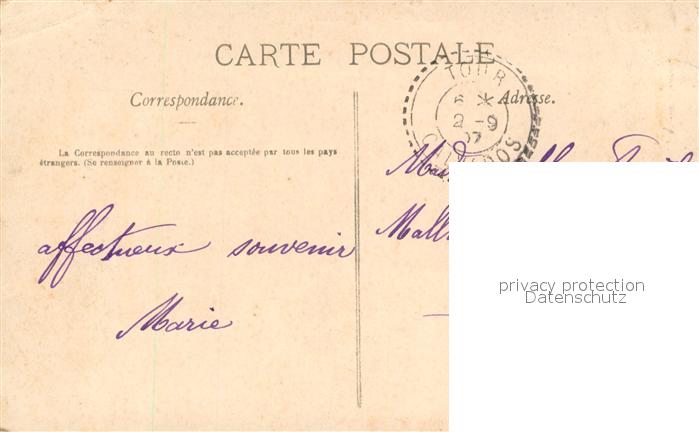 CARTE POSTALE
Correspondance.
La Correspondance au recto n'est pas acceptée par tous les pays
étrangers. (Se renseigner à la Poste.)
affectueux souvenir
Marie
TOUR
6 *
2 - 9
07
CALVADOS
Adresse.
privacy protection
Datenschutz